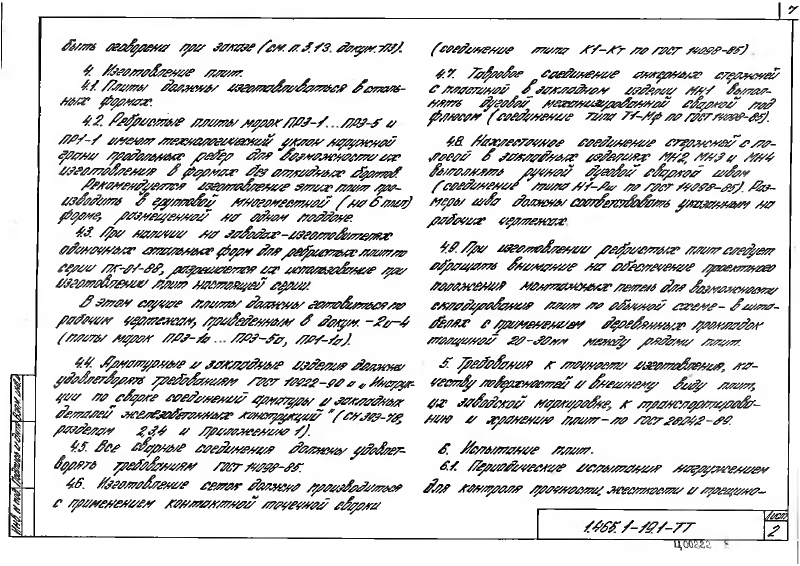 7
быть оговорена при заказе (см. п. 3.13. докум. ПЗ).
4. Изготовление плит.
4.1. Плиты должны изготавливаться в сталь-
ных формах.
4.2. Ребристые плиты марок ПРЭ-1 ... ПРЭ-5 и
ПР1-1 имеют технологический уклон наружной
грани продольных ребер для возможности их
изготовления в формах без откидных бортов.
Рекомендуется изготовление этих плит про-
изводить в групповой, многоместной (на 6 плит)
форме, размещенной на одном поддоне.
4.3. При наличии на заводах-изготовителях
одиночных стальных форм для ребристых плит по
серии ПК-01-88, разрешается их использование при
изготовлении плит настоящей серии.
В этом случае плиты должны готовиться по
рабочим чертежам, приведенным в докум. -2 и -4
(плиты марок ПРЭ-1а ... ПРЭ-5а, ПР1-1а).
4.4. Арматурные и закладные изделия должны
удовлетворять требованиям ГОСТ 10922-90 и „Инструк-
ции по сварке соединений арматуры и закладных
деталей железобетонных конструкций" (СН 393-78,
разделам 2,3,4 и Приложению 1).
4.5. Все сварные соединения должны удовлет-
ворять требованиям ГОСТ 14098-85.
4.6. Изготовление сеток должно производиться
с применением контактной точечной сварки
(соединение типа К1-Кт по ГОСТ 14098-85).
4.7. Тавровое соединение анкерных стержней
с пластиной в закладном изделии МН1 выпол-
нять дуговой механизированной сваркой под
флюсом (соединение типа Т1-Мф по ГОСТ 14098-85).
4.8. Нахлесточное соединение стержней с по-
лосой в закладных изделиях МН2, МН3 и МН4
выполнять ручной дуговой сваркой швом
(соединение типа Н1-Рш по ГОСТ 14098-85). Раз-
меры шва должны соответствовать указанным на
рабочих чертежах.
4.9. При изготовлении ребристых плит следует
обращать внимание на обеспечение проектного
положения монтажных петель для возможности
складирования плит по обычной схеме - в шта-
белях с применением деревянных прокладок
толщиной 20-30мм между рядами плит.
5. Требования к точности изготовления, ка-
честву поверхностей и внешнему виду плит,
их заводской маркировке, к транспортирова-
нию и хранению плит - по ГОСТ 28042-89.
6. Испытание плит.
6.1. Периодические испытания нагружением
для контроля прочности, жесткости и трещино-
Инв. № подл. Подпись и дата Взам. инв. №
1.465.1-19.1-ТТ
Лист
2
Ц00222 8